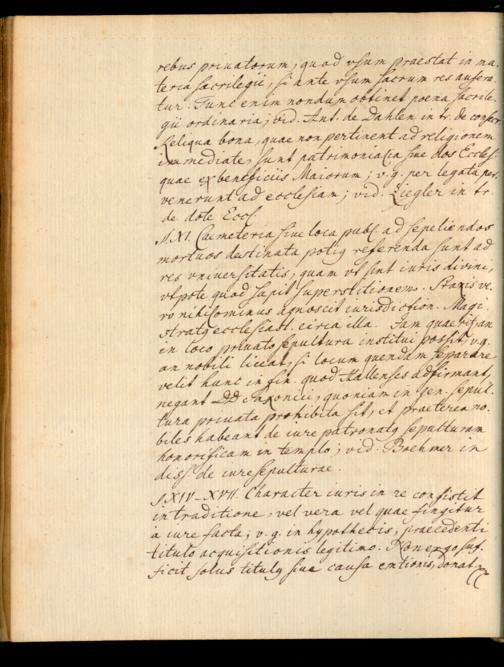 rebus privatorum, quod vsum praestat in ma-
teria sacrilegii, si ante vsum sacrum res aufera-
tur. Tunc enim nondum obtinet poena sacrile-
gii ordinaria; vid. Ant. de Dahlen in tr. de
Reliqua bona, quae non pertinent ad religionem
immediate, sunt patrimonialia sive dos Eccles.
quae ex beneficiis Maiorum; v.g. per legata per-
venerunt ad ecclesiam; vid. Ziegler in tr
de dote Eccl.
§. XI. Caemeteria sive loca publ. ad sepeliendos
mortuos destinata potig referenda sunt ad
res vniversitatis, quam vt sint iuris divini,
vtpote quod sapit superstitionem. Hanis ve-
ro nihilominus agnoscit iurisdiction. Magi-
stratg ecclesiast. circa illa. Jam quaerit, an
in loco privato sepultura institui possit, v.g.
an nobili liceat, si locum quendam separare
velit hunc in fin. quod Hallenses adfirmant,
negant DD Saxonici, quoniam in gen. sepul-
tura privata prohibita sit, et praeterea no-
biles habeant de iure patronatg sepulturam
honorificam in templo; vid. Boehmer in
diss. de iure sepulturae.
§ XIV-XVII. Character iuris in re consistit
in traditione, vel vera vel quae fingitur
a iure facta; v.g. in hypothecis, praecedenti
titulo acquisitionis legitimo. Non ergo suf-
ficit solus titulg sive causa emtionis, donat